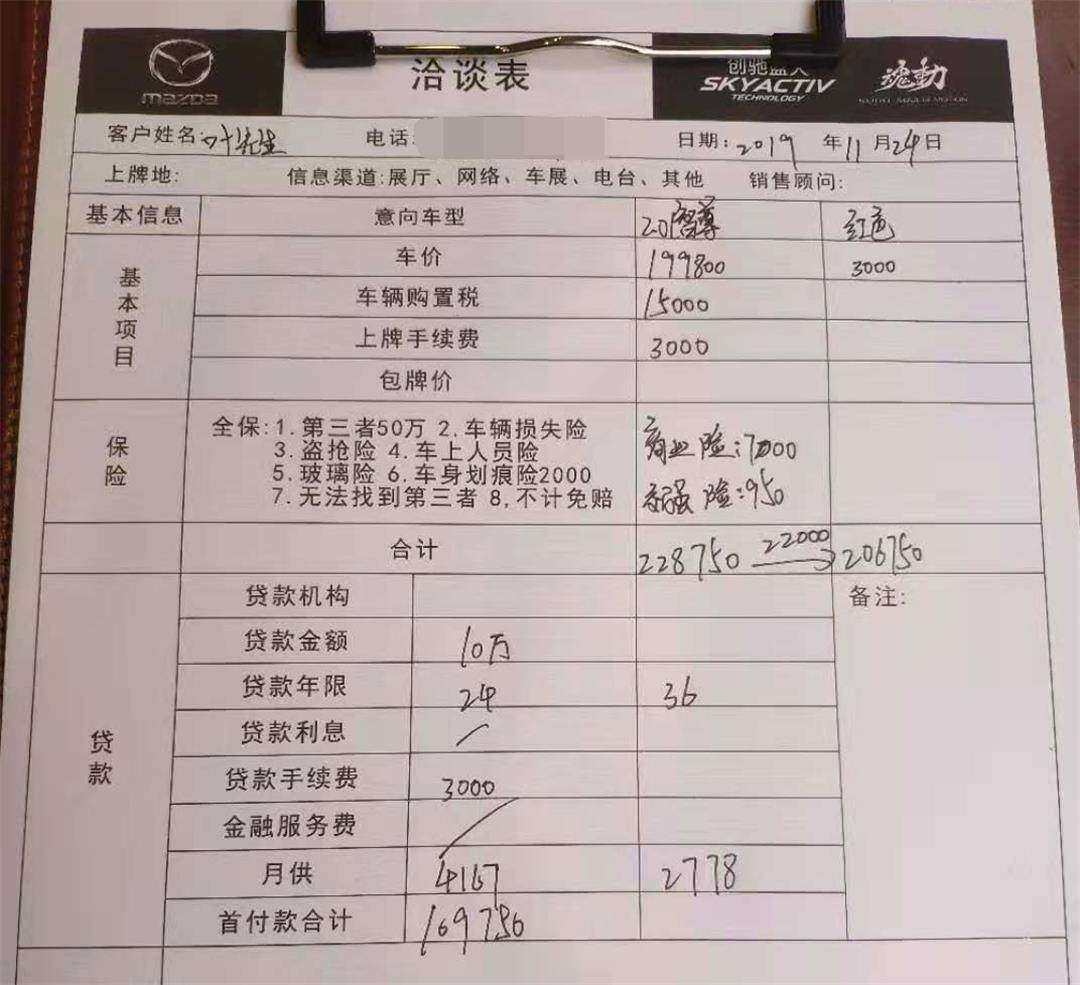 mazda
洽谈表
SKYACTIV
TECHNOLOGY
魂動
客户姓名:叶先生 电话: 日期:2019 年11月24日
上牌地: 信息渠道:展厅、网络、车展、电台、其他 销售顾问:
基本信息 意向车型 2.0智尊 红色
基本项目
车价 199800 3000
车辆购置税 15000
上牌手续费 3000
包牌价
保险
全保:1.第三者50万 2.车辆损失险
3.盗抢险 4.车上人员险
5.玻璃险 6.车身划痕险2000
7.无法找到第三者 8,不计免赔
商业险:7000
交强险:950
合计 228750 22000 206750
贷款
贷款机构 备注:
贷款金额 10万
贷款年限 24 36
贷款利息 /
贷款手续费 3000
金融服务费 /
月供 4167 2778
首付款合计